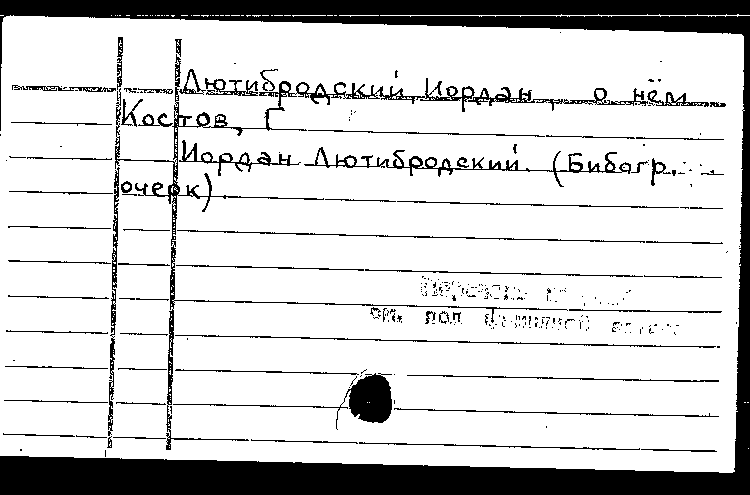 Лютибродский, Иордан, о нём
Костов, Г
Иордан Лютибродский. (Бибагр.
очерк).
см. под